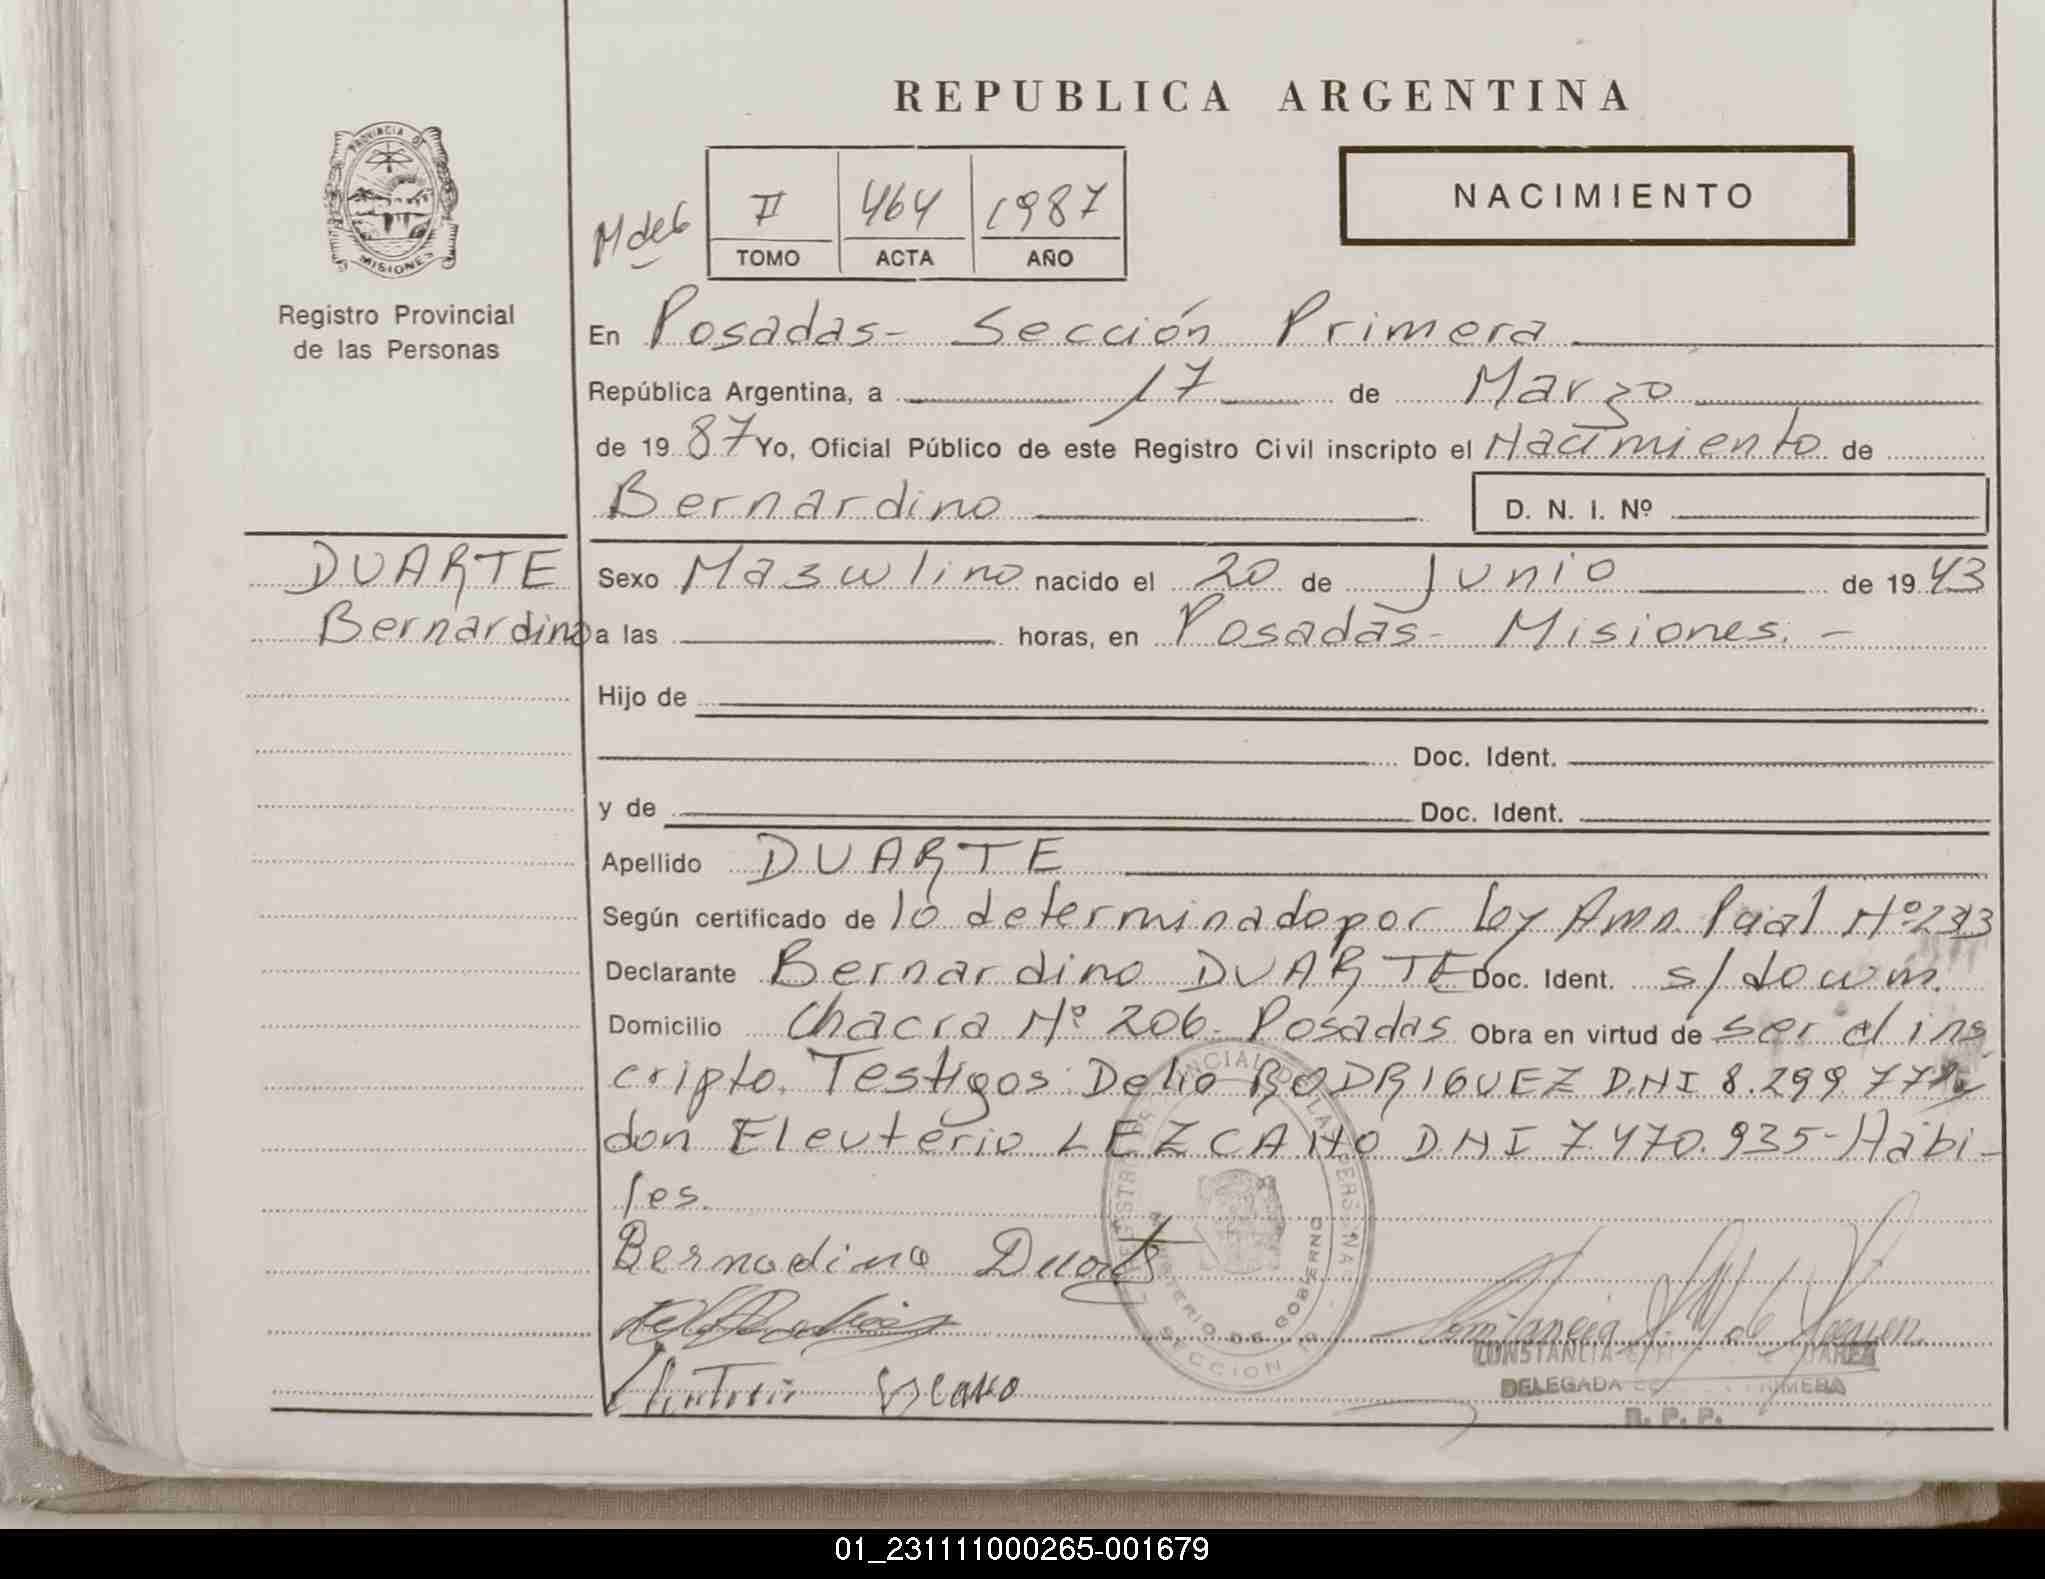 REPUBLICA ARGENTINA
PROVINCIA DE MISIONES
Registro Provincial
de las Personas
M de 6
II 464 1987
TOMO ACTA AÑO
NACIMIENTO
En Posadas- Sección Primera
República Argentina, a 17 de Marzo
de 19 87 Yo, Oficial Público de este Registro Civil inscripto el Nacimiento de
Bernardino D. N. I. Nº
DUARTE
Bernardino
Sexo Masculino nacido el 20 de Junio de 19 43
a las horas, en Posadas- Misiones.-
Hijo de
Doc. Ident.
y de Doc. Ident.
Apellido DUARTE
Según certificado de lo determinado por Ley Amn. Pcial Nº 2313
Declarante Bernardino DUARTE Doc. Ident. s/docum.
Domicilio Chacra Nº 206. Posadas Obra en virtud de ser el ins
cripto. Testigos: Delio RODRIGUEZ D.N.I 8.299.77
don Eleuterio LEZCANO D.N.I 7.470.935- Hábi-
les.
Bernadino Duarte
CONSTANCIA
DELEGADA PRIMERA
R. P. P.
REGISTRO PROVINCIAL DE LAS PERSONAS
MINISTERIO DE GOBIERNO
SECCION 1a
01_231111000265-001679